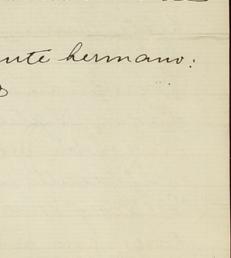 ente hermano: